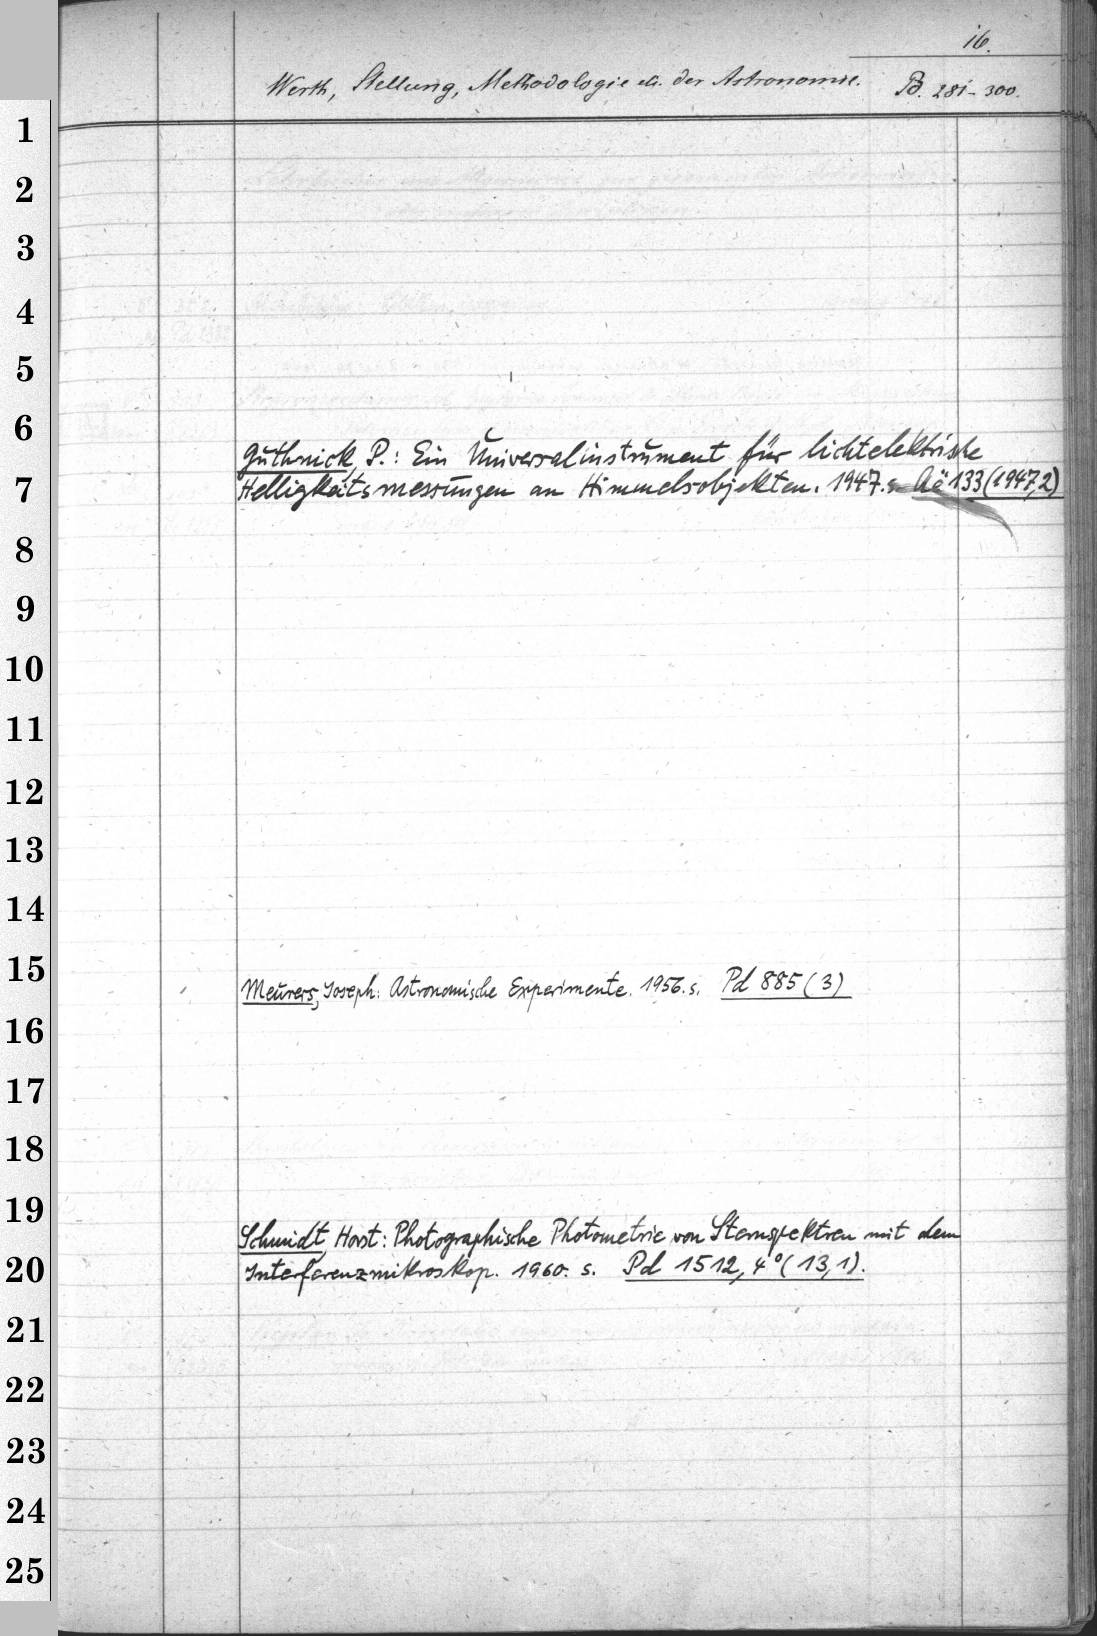 16.
Werth, Stellung, Methodologie etc. der Astronomie. B. 281-300.
1
2
3
4
5
6
Guthnick, P.: Ein Universalinstrument für lichtelektrische
7
Helligkeitsmessungen an Himmelsobjekten. 1947. s. Aö 133 (1947,2)
8
9
10
11
12
13
14
15
Meurers, Joseph: Astronomische Experimente. 1956. s. Pd 885 (3)
16
17
18
19
Schmidt, Horst: Photographische Photometrie von Sternspektren mit dem
20
Interferenzmikroskop. 1960. s. Pd 1512, 4° (13,1).
21
22
23
24
25